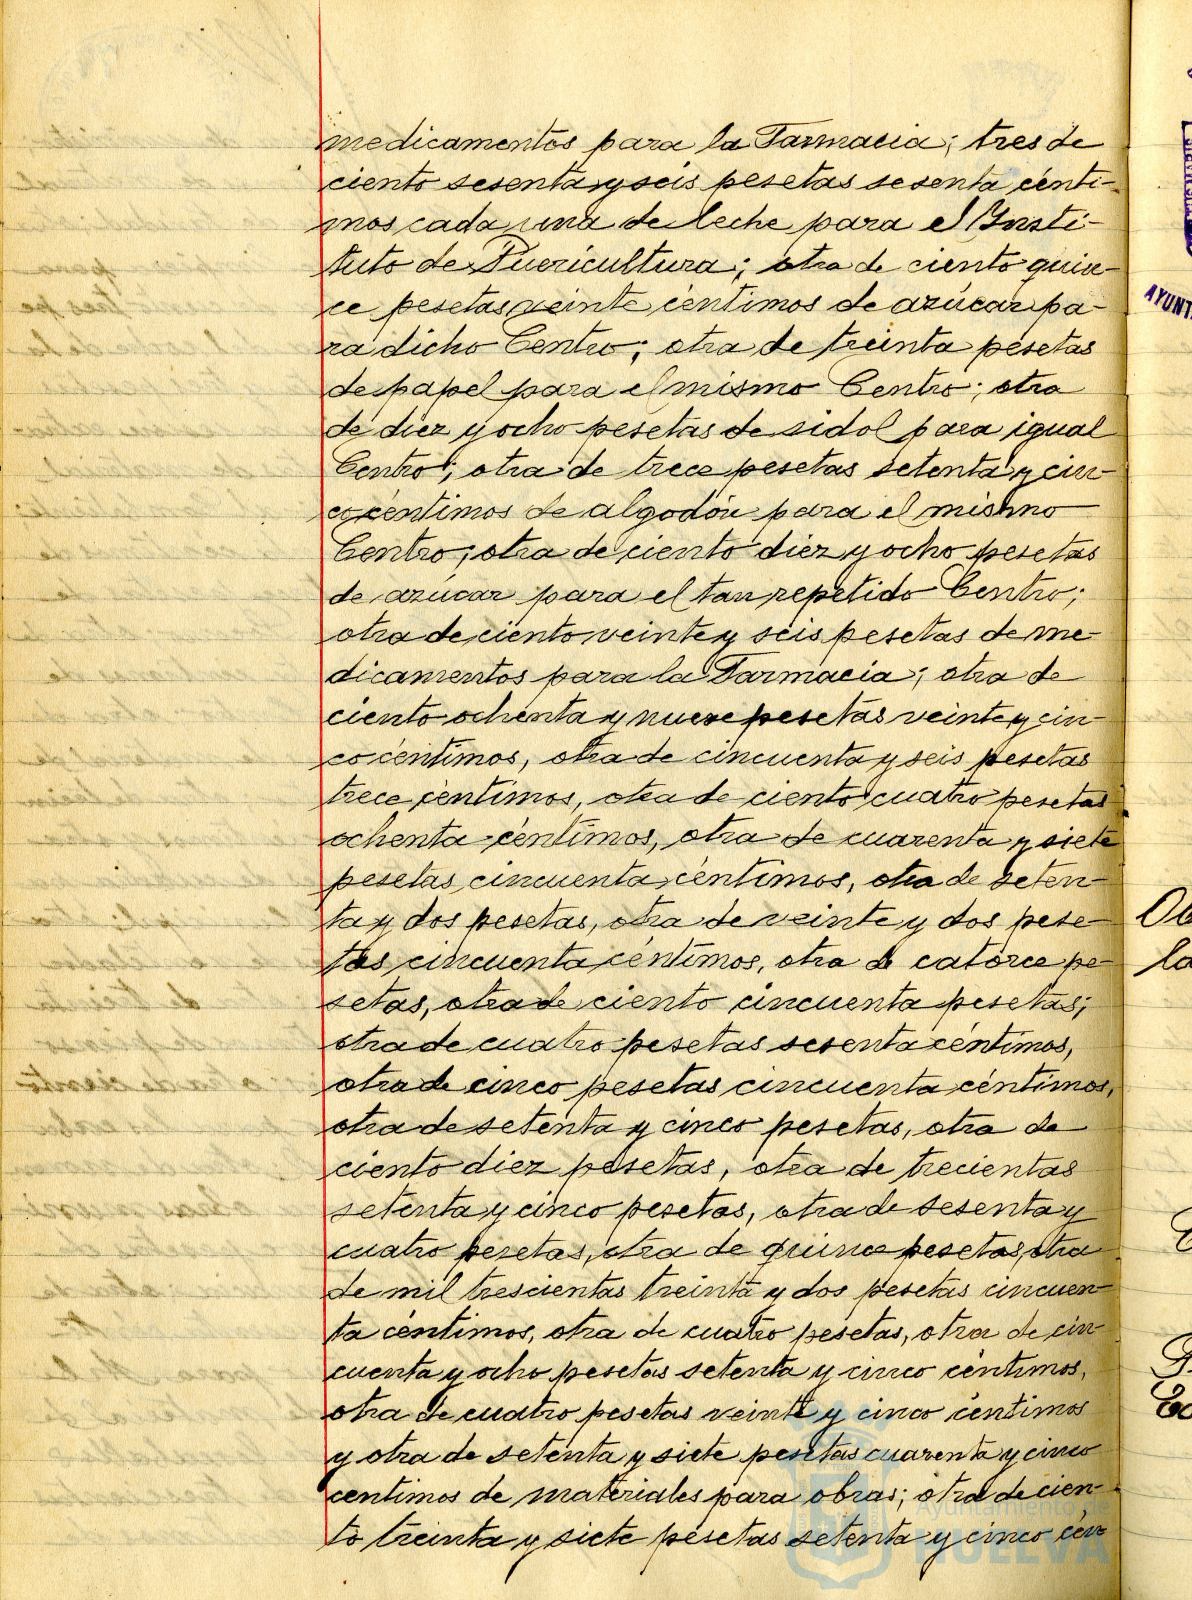 medicamentos para la Farmacia; tres de
ciento sesenta y seis pesetas sesenta cénti-
mos cada una de leche para el Insti-
tuto de Puericultura; otra de ciento quin-
ce pesetas veinte céntimos de azúcar pa-
ra dicho Centro; otra de treinta pesetas
de papel para el mismo Centro; otra
de diez y ocho pesetas de sidol para igual
Centro; otra de trece pesetas setenta y cin-
co céntimos de algodón para el mismo
Centro; otra de ciento diez y ocho pesetas
de azúcar para el tan repetido Centro;
otra de ciento veinte y seis pesetas de me-
dicamentos para la Farmacia; otra de
ciento ochenta y nueve pesetas veinte y cin-
co céntimos, otra de cincuenta y seis pesetas
trece céntimos, otra de ciento cuatro pesetas
ochenta céntimos, otra de cuarenta y siete
pesetas cincuenta céntimos, otra de seten-
ta y dos pesetas, otra de veinte y dos pese-
tas cincuenta céntimos, otra de catorce pe-
setas, otra de ciento cincuenta pesetas;
otra de cuatro pesetas sesenta céntimos,
otra de cinco pesetas cincuenta céntimos,
otra de setenta y cinco pesetas, otra de
ciento diez pesetas, otra de trecientas
setenta y cinco pesetas, otra de sesenta y
cuatro pesetas, otra de quince pesetas, otra
de mil trescientas treinta y dos pesetas cincuen-
ta céntimos, otra de cuatro pesetas, otra de cin-
cuenta y ocho pesetas setenta y cinco céntimos,
otra de cuatro pesetas veinte y cinco céntimos
y otra de setenta y siete pesetas cuarenta y cinco
centimos de materiales para obras; otra de cien-
to treinta y siete pesetas setenta y cinco cén-
Ayuntamiento de
HUELVA